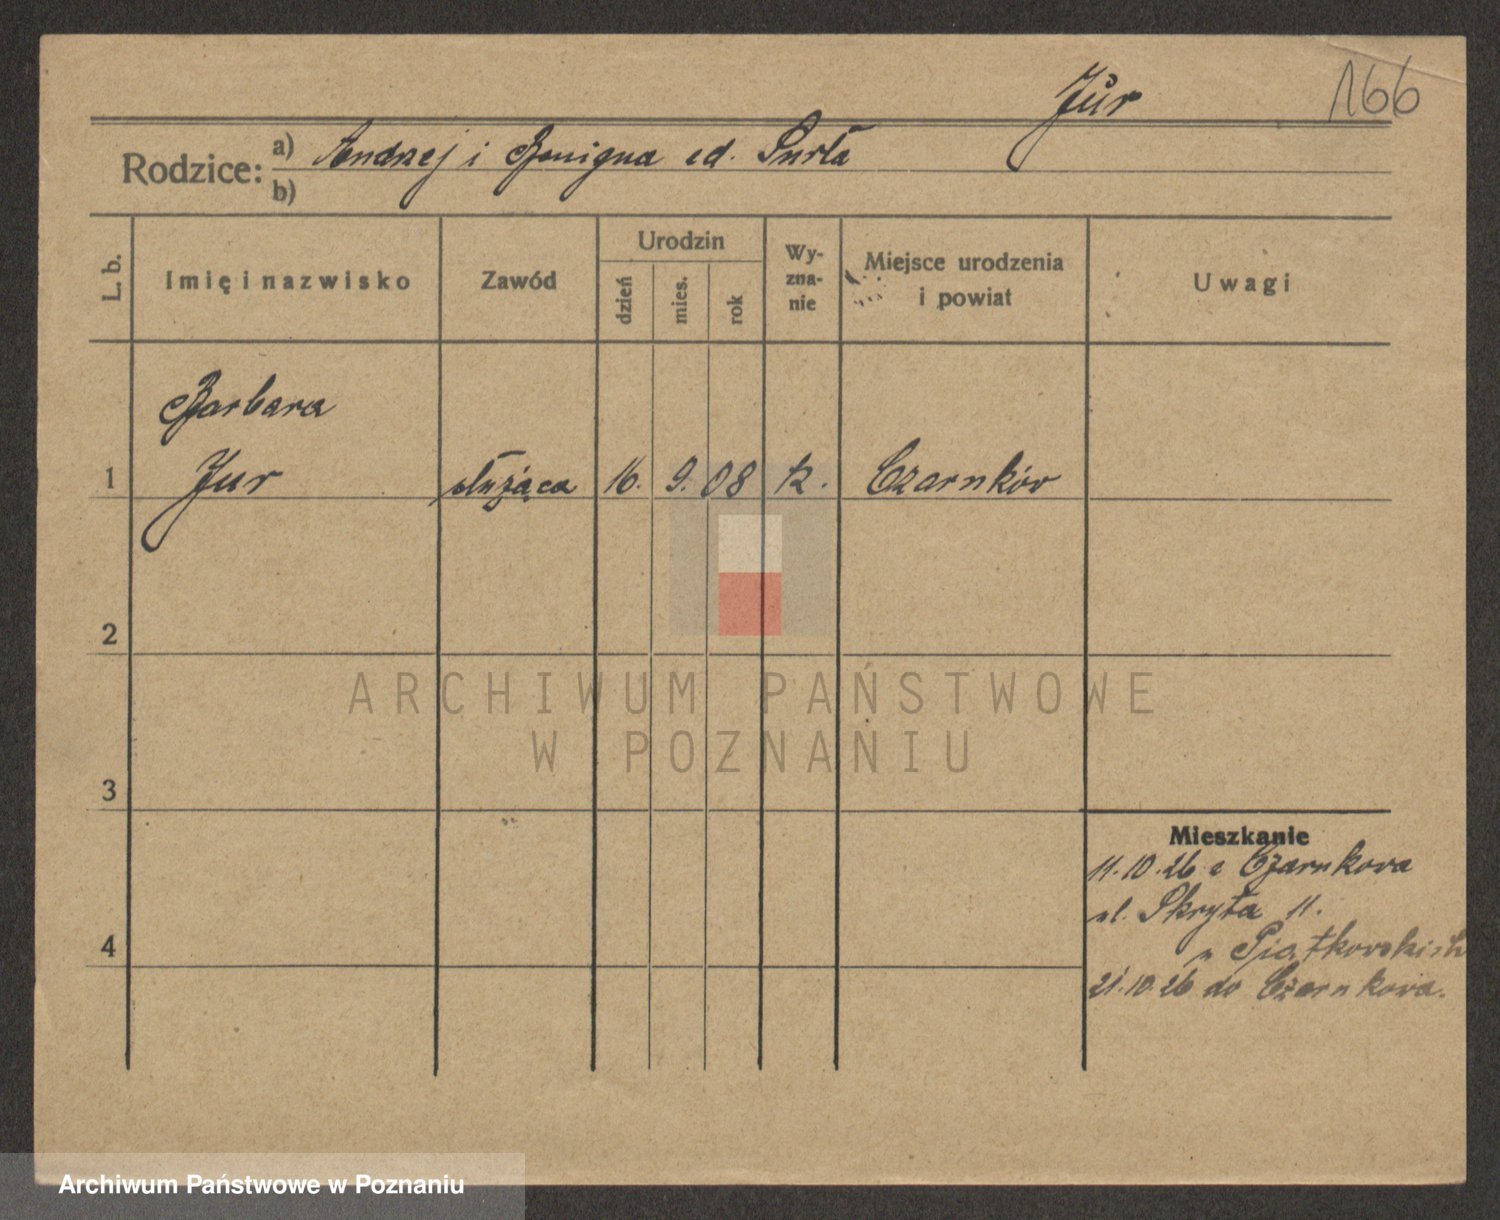 Jur
166
Rodzice:
a) Andrzej i Benigna
b)
L. b.
Imię i nazwisko
Zawód
Urodzin
dzień
mies.
rok
Wy-
zna-
nie
Miejsce urodzenia
i powiat
Uwagi
Barbara
1 Jur służąca 16. 9. 08 k. Czarnków
2
3
4
Mieszkanie
11.10.26 z Czarnkowa
ul. Skryta 11.
u Piątkowskich
21.10.26 do Czarnkowa.
ARCHIWUM PAŃSTWOWE
W POZNANIU
Archiwum Państwowe w Poznaniu